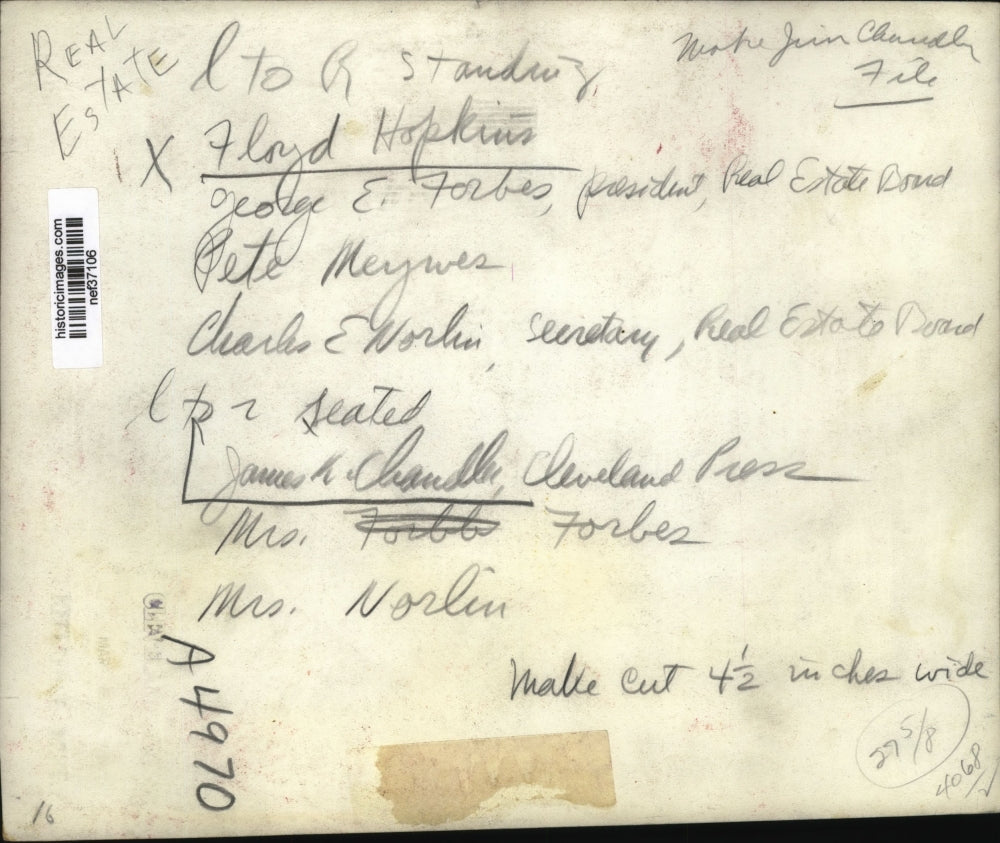 REAL
ESTATE
Make Jim Chandler
File
l to R standing
X Floyd Hopkins
George E. Forbes, president, Real Estate Board
Pete Meywes
Charles E Norlin, secretary, Real Estate Board
l to r seated
James K. Chandler, Cleveland Press
Mrs. Forbes
Mrs. Norlin
A4970
Make cut 4½ inches wide
27 5/8
4068
16
historicimages.com
nef37106